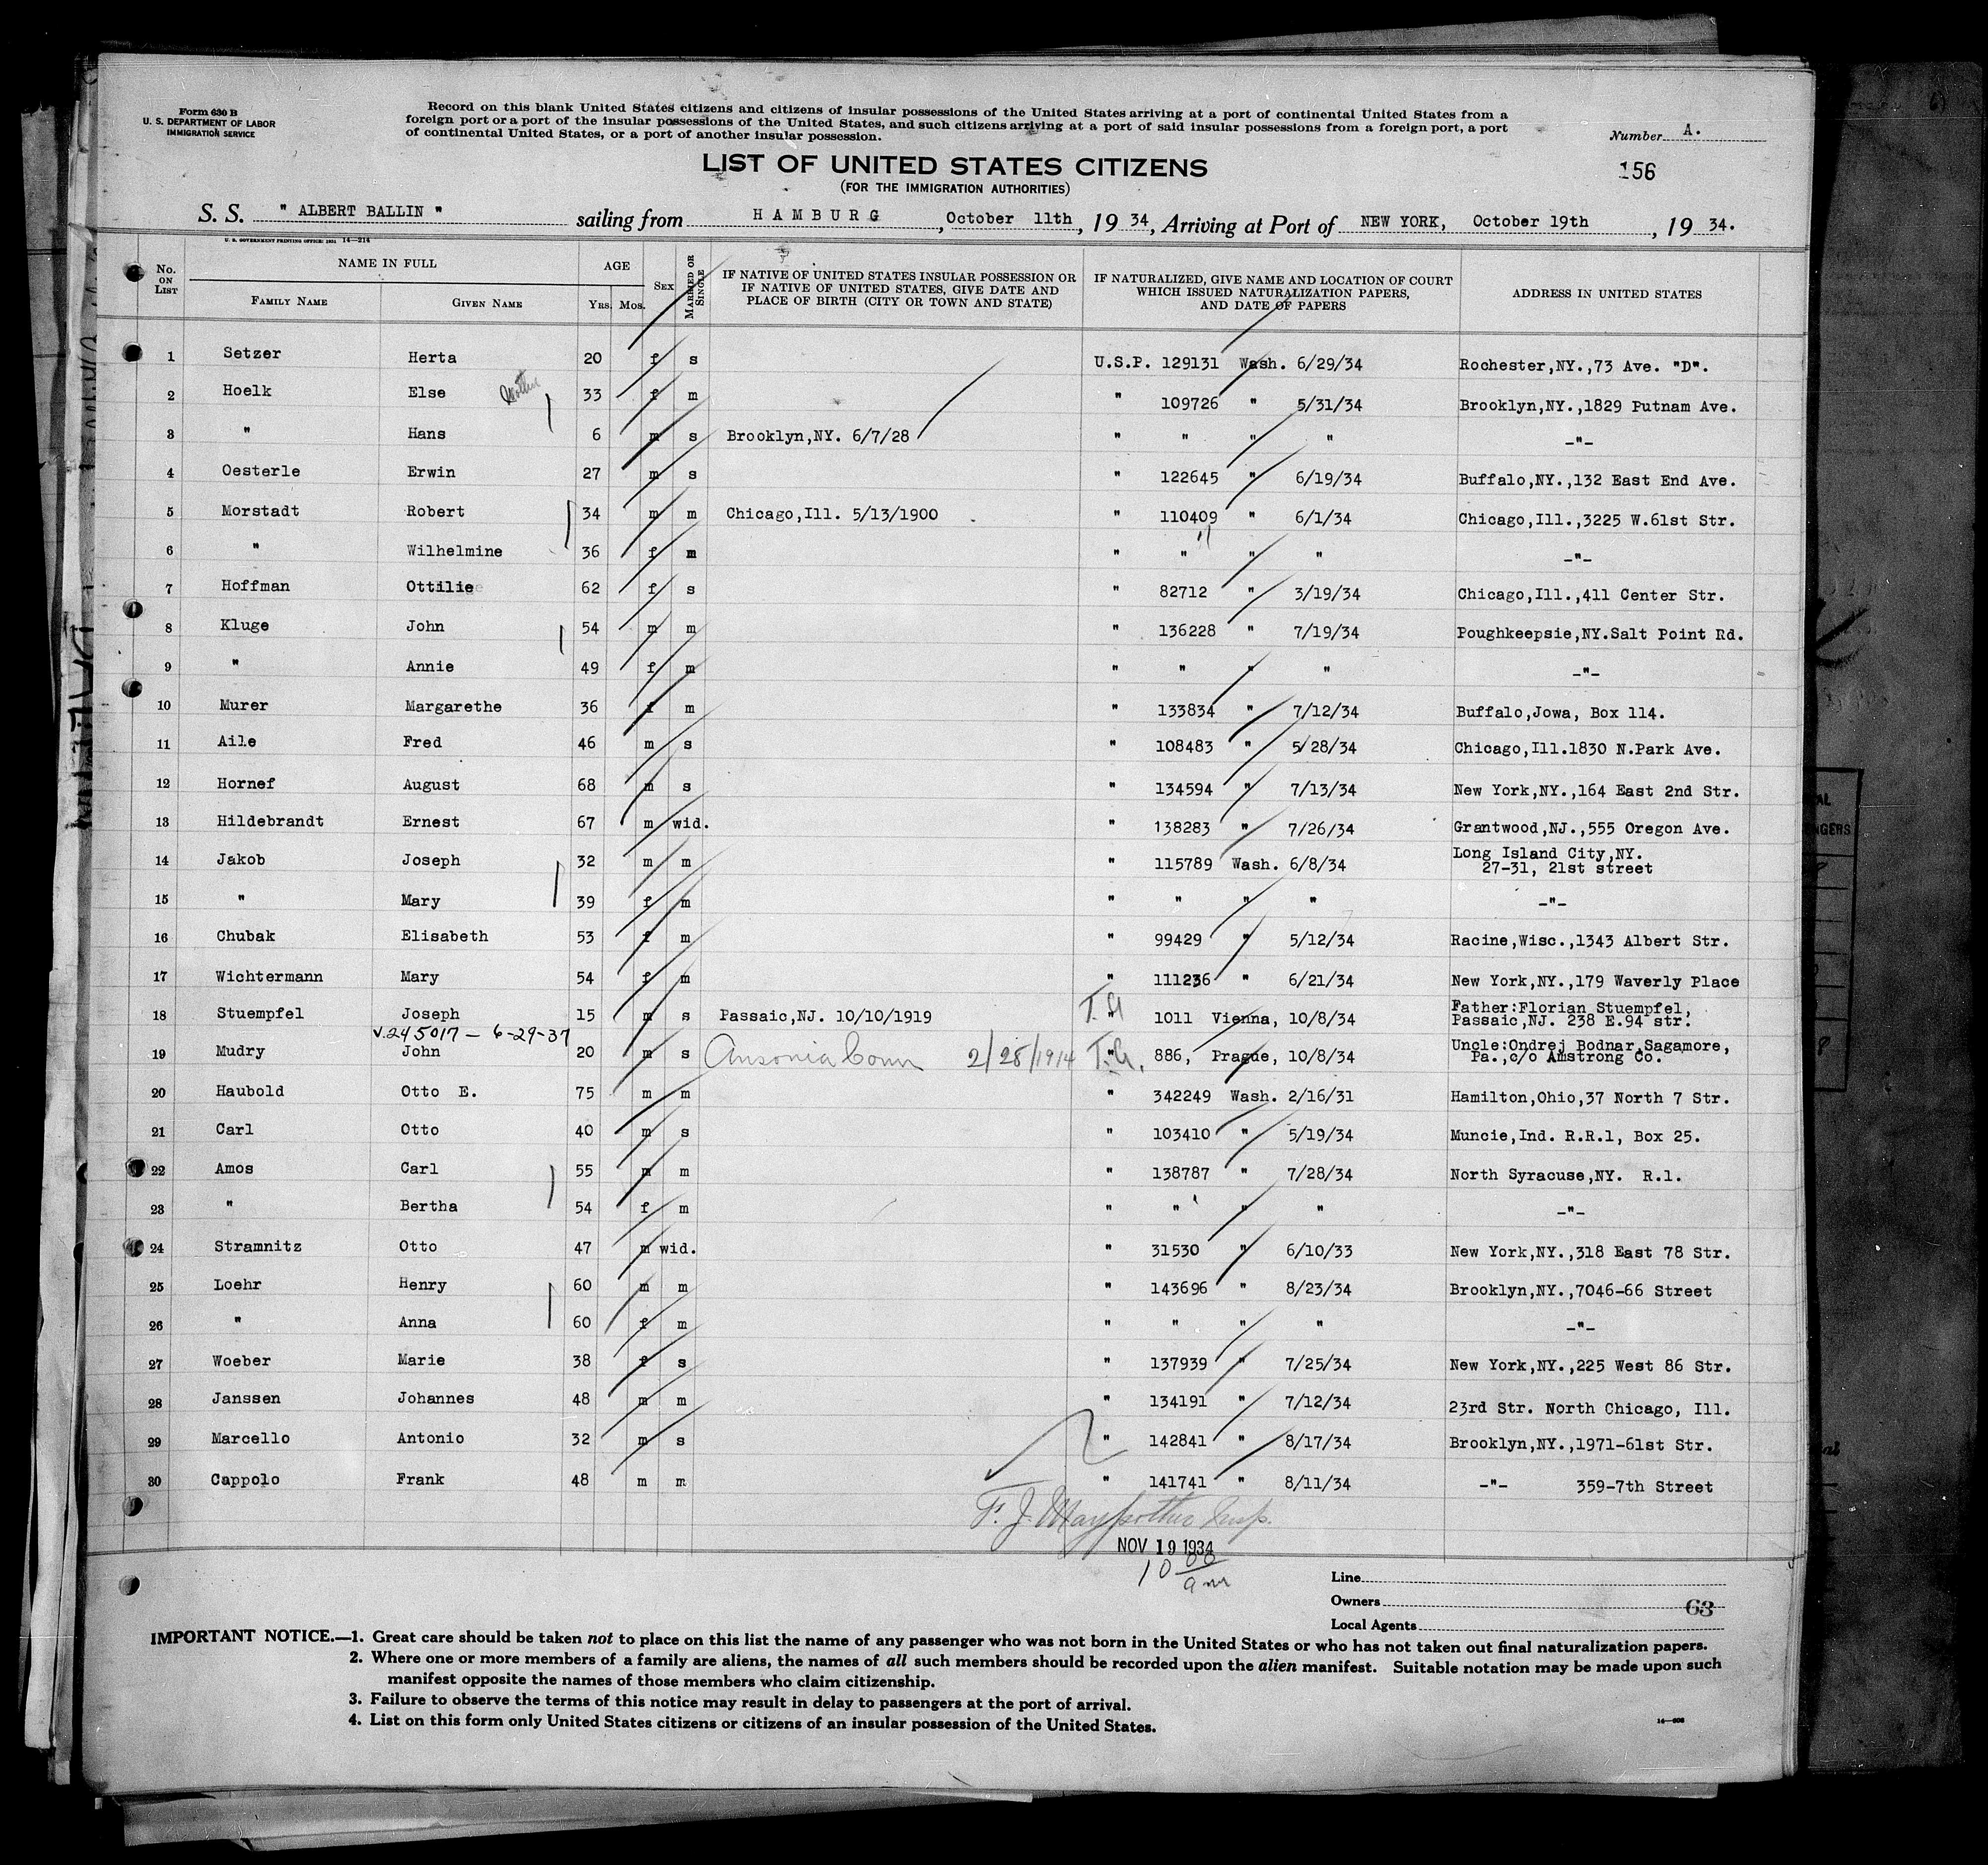 Form 630 B
U. S. DEPARTMENT OF LABOR
IMMIGRATION SERVICE
Record on this blank United States citizens and citizens of insular possessions of the United States arriving at a port of continental United States from a
foreign port or a port of the insular possessions of the United States, and such citizens arriving at a port of said insular possessions from a foreign port, a port
of continental United States, or a port of another insular possession.
Number A.
LIST OF UNITED STATES CITIZENS
156
(FOR THE IMMIGRATION AUTHORITIES)
S. S. " ALBERT BALLIN " sailing from HAMBURG, October 11th, 19 34, Arriving at Port of NEW YORK, October 19th, 19 34.
U. S. GOVERNMENT PRINTING OFFICE: 1934 14—214
No. ON LIST NAME IN FULL FAMILY NAME GIVEN NAME AGE Yrs. Mos. SEX MARRIED OR SINGLE IF NATIVE OF UNITED STATES INSULAR POSSESSION OR IF NATIVE OF UNITED STATES, GIVE DATE AND PLACE OF BIRTH (CITY OR TOWN AND STATE) IF NATURALIZED, GIVE NAME AND LOCATION OF COURT WHICH ISSUED NATURALIZATION PAPERS, AND DATE OF PAPERS ADDRESS IN UNITED STATES
1 Setzer Herta 20 f s U.S.P. 129131 Wash. 6/29/34 Rochester,NY.,73 Ave. "D".
2 Hoelk Else 33 f m " 109726 " 5/31/34 Brooklyn,NY.,1829 Putnam Ave.
3 " Hans 6 m s Brooklyn,NY. 6/7/28 " " " " -"-
4 Oesterle Erwin 27 m s " 122645 " 6/19/34 Buffalo,NY.,132 East End Ave.
5 Morstadt Robert 34 m m Chicago,Ill. 5/13/1900 " 110409 " 6/1/34 Chicago,Ill.,3225 W.61st Str.
6 " Wilhelmine 36 f m " " " " -"-
7 Hoffman Ottilie 62 f s " 82712 " 3/19/34 Chicago,Ill.,411 Center Str.
8 Kluge John 54 m m " 136228 " 7/19/34 Poughkeepsie,NY.Salt Point Rd.
9 " Annie 49 f m " " " " -"-
10 Murer Margarethe 36 f m " 133834 " 7/12/34 Buffalo,Jowa, Box 114.
11 Aile Fred 46 m s " 108483 " 5/28/34 Chicago,Ill.1830 N.Park Ave.
12 Hornef August 68 m s " 134594 " 7/13/34 New York,NY.,164 East 2nd Str.
13 Hildebrandt Ernest 67 m wid. " 138283 " 7/26/34 Grantwood,NJ.,555 Oregon Ave.
14 Jakob Joseph 32 m m " 115789 Wash. 6/8/34 Long Island City,NY.
27-31, 21st street
15 " Mary 39 f m " " " " -"-
16 Chubak Elisabeth 53 f m " 99429 " 5/12/34 Racine,Wisc.,1343 Albert Str.
17 Wichtermann Mary 54 f m " 111236 " 6/21/34 New York,NY.,179 Waverly Place
18 Stuempfel Joseph 15 m s Passaic,NJ. 10/10/1919 " 1011 Vienna, 10/8/34 Father:Florian Stuempfel,
Passaic,NJ. 238 E.94 str.
V245017 — 6-29-37
19 Mudry John 20 m s Ansonia Conn 2/28/1914 " 886, Prague, 10/8/34 Uncle:Ondrej Bodnar,Sagamore,
Pa.,c/o Amstrong Co.
20 Haubold Otto E. 75 m m " 342249 Wash. 2/16/31 Hamilton,Ohio,37 North 7 Str.
21 Carl Otto 40 m s " 103410 " 5/19/34 Muncie,Ind. R.R.1, Box 25.
22 Amos Carl 55 m m " 138787 " 7/28/34 North Syracuse,NY. R.1.
23 " Bertha 54 f m " " " " -"-
24 Stramnitz Otto 47 m wid. " 31530 " 6/10/33 New York,NY.,318 East 78 Str.
25 Loehr Henry 60 m m " 143696 " 8/23/34 Brooklyn,NY.,7046-66 Street
26 " Anna 60 f m " " " " -"-
27 Woeber Marie 38 f s " 137939 " 7/25/34 New York,NY.,225 West 86 Str.
28 Janssen Johannes 48 m m " 134191 " 7/12/34 23rd Str. North Chicago, Ill.
29 Marcello Antonio 32 m s " 142841 " 8/17/34 Brooklyn,NY.,1971-61st Str.
30 Cappolo Frank 48 m m " 141741 " 8/11/34 -"- 359-7th Street
F. J.
NOV 19 1934
10 00 am
Line
Owners
63
Local Agents
IMPORTANT NOTICE.—1. Great care should be taken not to place on this list the name of any passenger who was not born in the United States or who has not taken out final naturalization papers.
2. Where one or more members of a family are aliens, the names of all such members should be recorded upon the alien manifest. Suitable notation may be made upon such
manifest opposite the names of those members who claim citizenship.
3. Failure to observe the terms of this notice may result in delay to passengers at the port of arrival.
4. List on this form only United States citizens or citizens of an insular possession of the United States.